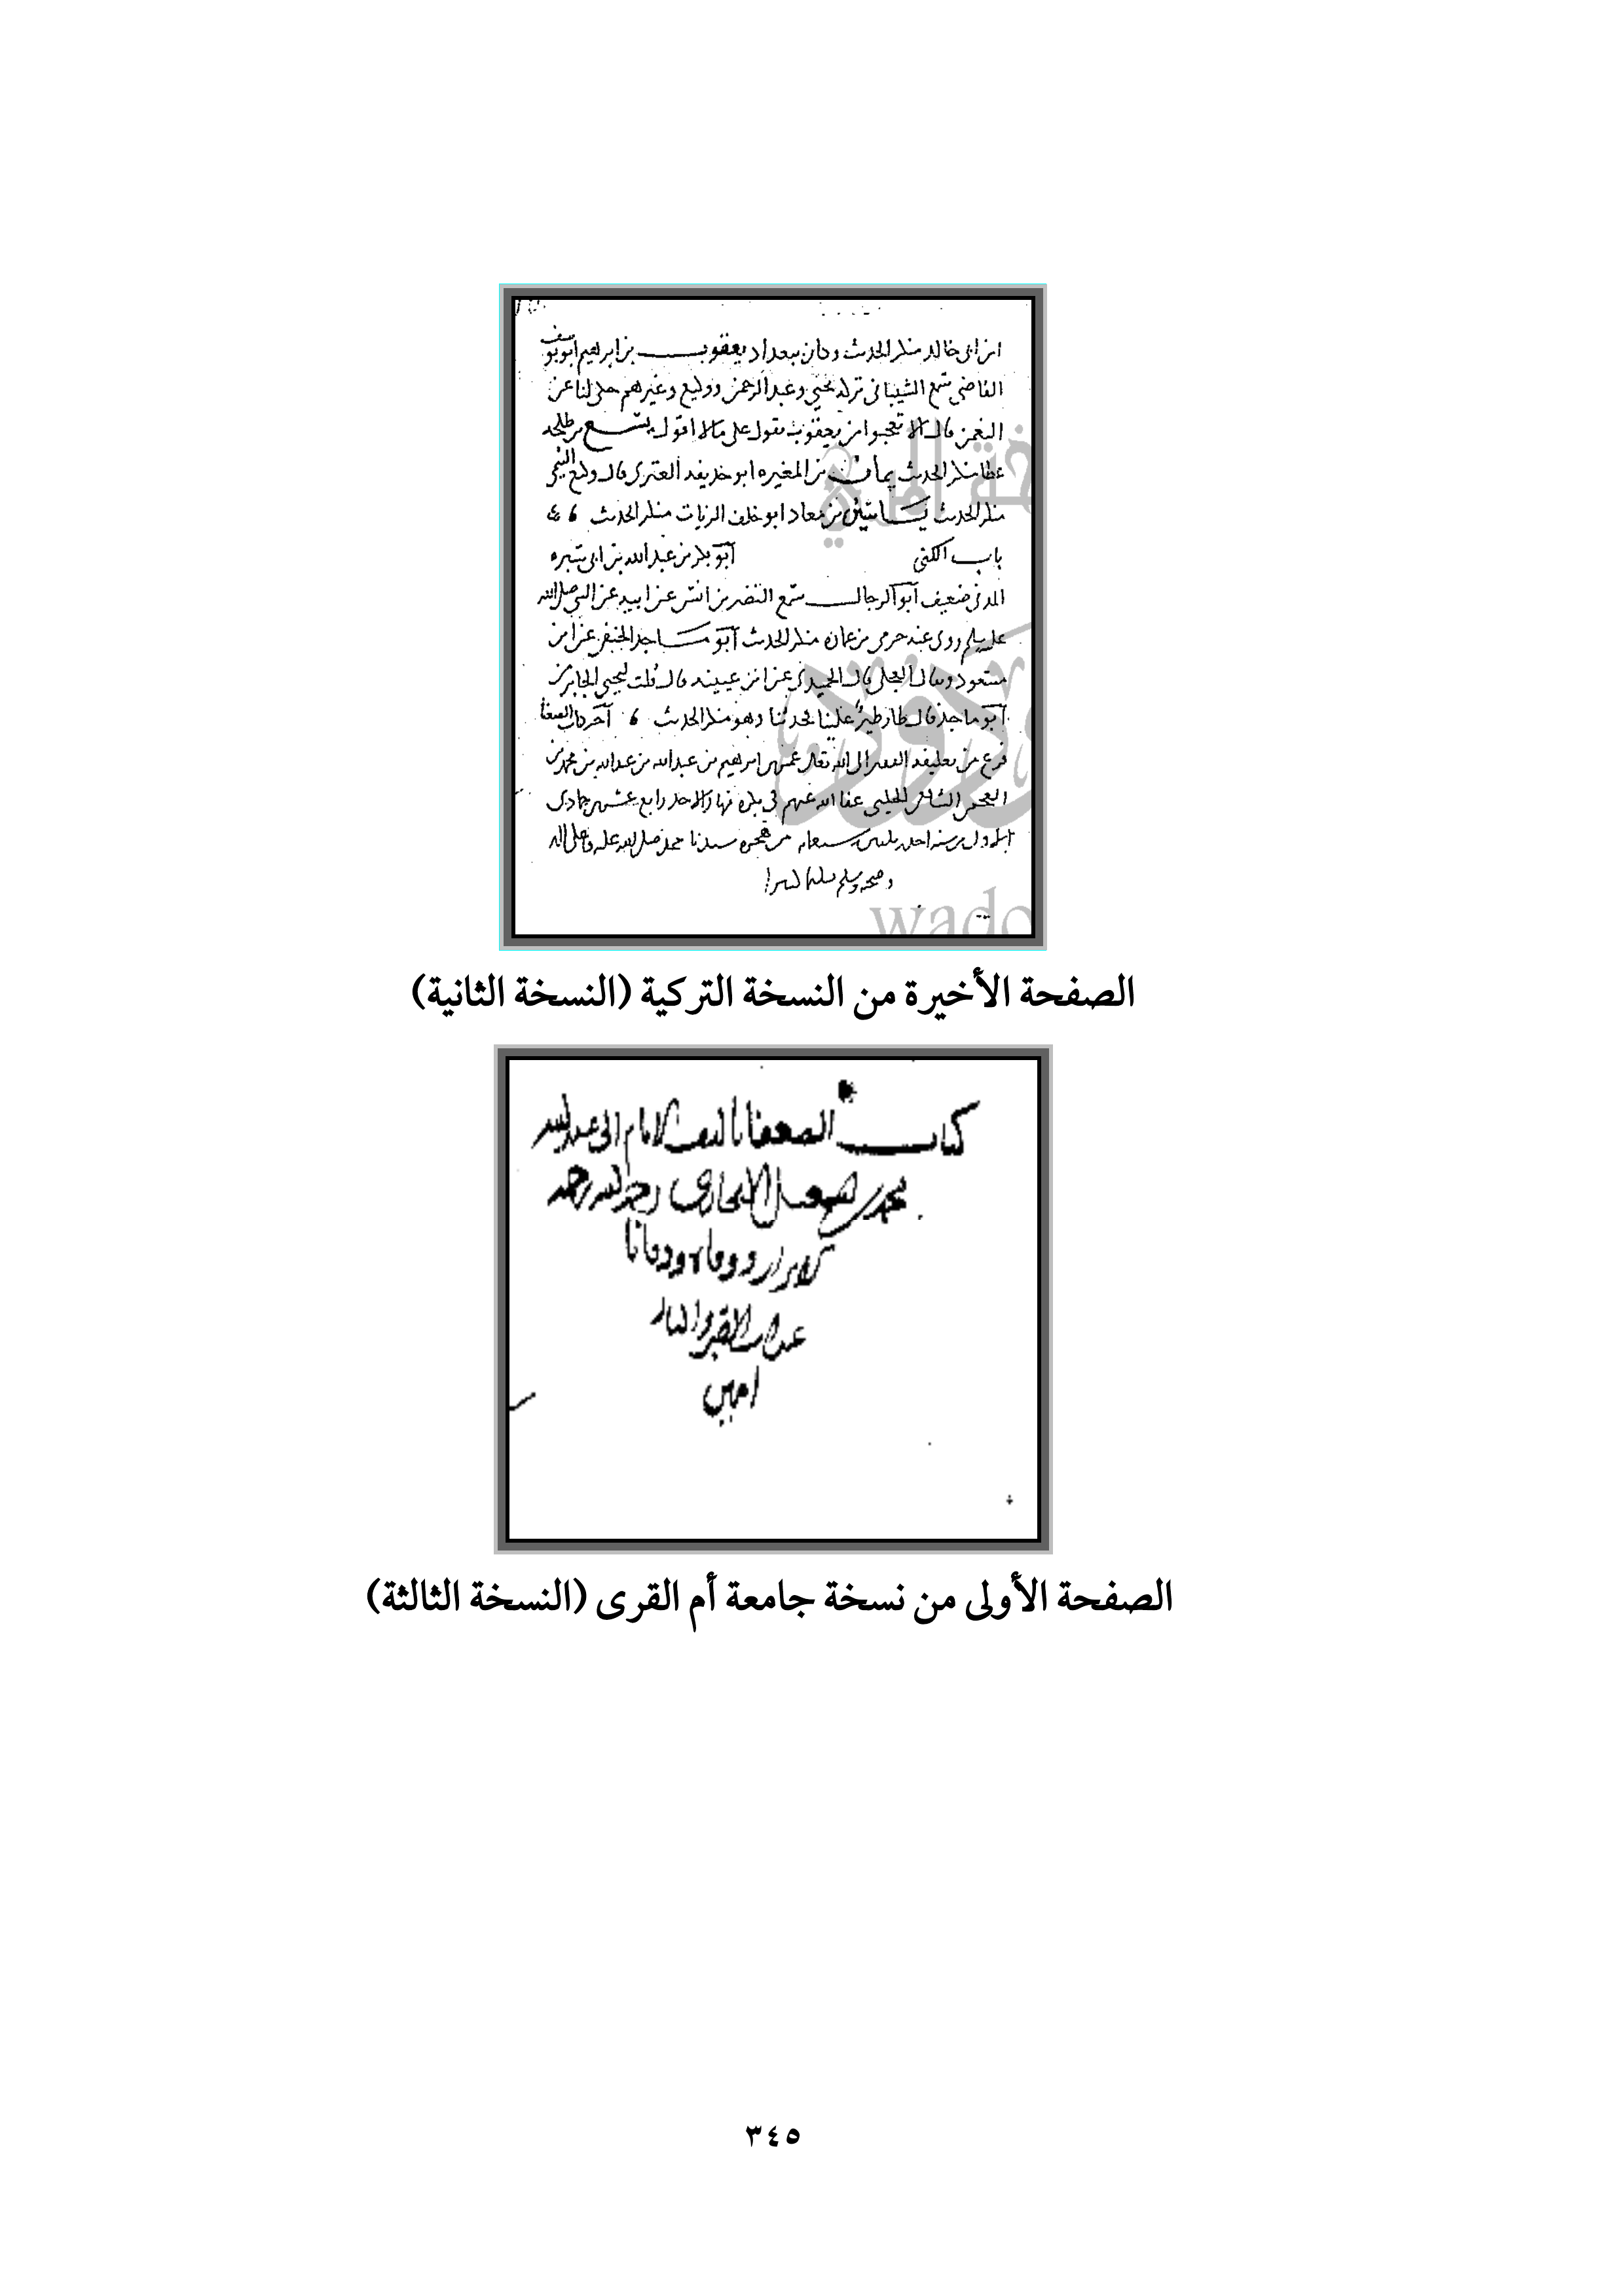 ابن ابى خالد منكر الحدث وكان ببغداد يعقوب بن ابرهيم ابو يوسف
القاضى سمع الشيبانى تركه يحيى وعبد الرحمن ووكيع وغيرهم حكى لنا عن
النعمن قال الا تعجبوا من يعقوب يقول على مالا اقول
عطا منكر الحدث يمان بن المغيره ابو حذيفه العنزى قال وكيع التيمى
منكر الحدث ياسين بن معاد ابو خلف الزيات منكر الحدث
باب الكنى ابو بكر بن عبد الله بن ابى سبره
المدنى ضعيف ابو الرجال سمع النضر بن انس عن ابيه عن النبى صلى الله
عليه وسلم روى عنه حرمى بن عماره منكر الحدث ابو ماجد الحنفى عن ابن
مسعود وقال العجلى قال الحميدى عن ابن عيينه قال قلت ليحيى الجابر من
ابو ماجد قال طار طير علينا فحدثنا وهو منكر الحدث آخر كتاب الضعفا
فرغ من تعليقه الفقير الى الله تعالى عمر بن ابرهيم بن عبد الله بن عبد الله بن محمد بن
العجمى الشافعى الحلبى عفا الله عنهم فى بكرة نهار الاحد رابع عشر جمادى
الاول من سنه احدى وسبعمايه من هجره سيدنا محمد صلى الله عليه وعلى اله
وصحبه وسلم تسليما كثيرا
wado
الصفحة الأخيرة من النسخة التركية (النسخة الثانية)
كتاب الضعفا تاليف الامام ابى عبد الله
محمد بن اسمعيل البخارى رحمه الله رحمة
الابرار ووقاه ووقانا
عذاب القبر والنار
امين
الصفحة الأولى من نسخة جامعة أم القرى (النسخة الثالثة)
٣٤٥